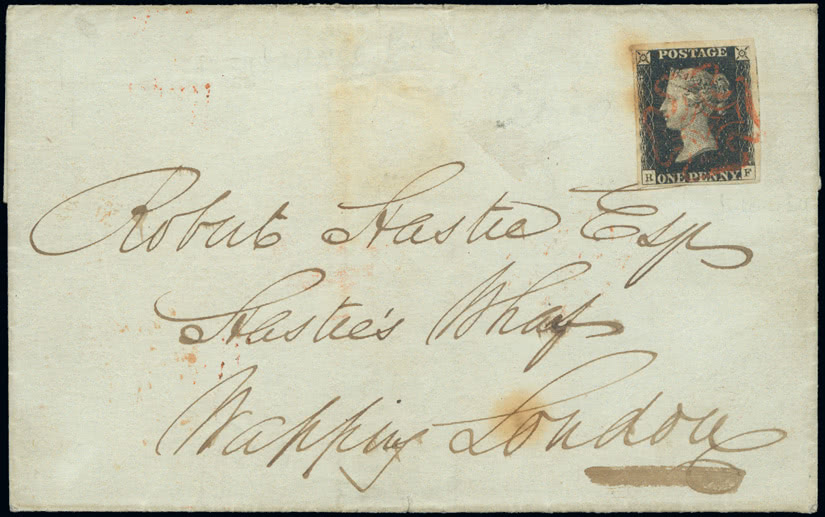 POSTAGE
R F
ONE PENNY
Robert Hastie Esq
Hastie's Wharf
Wapping London